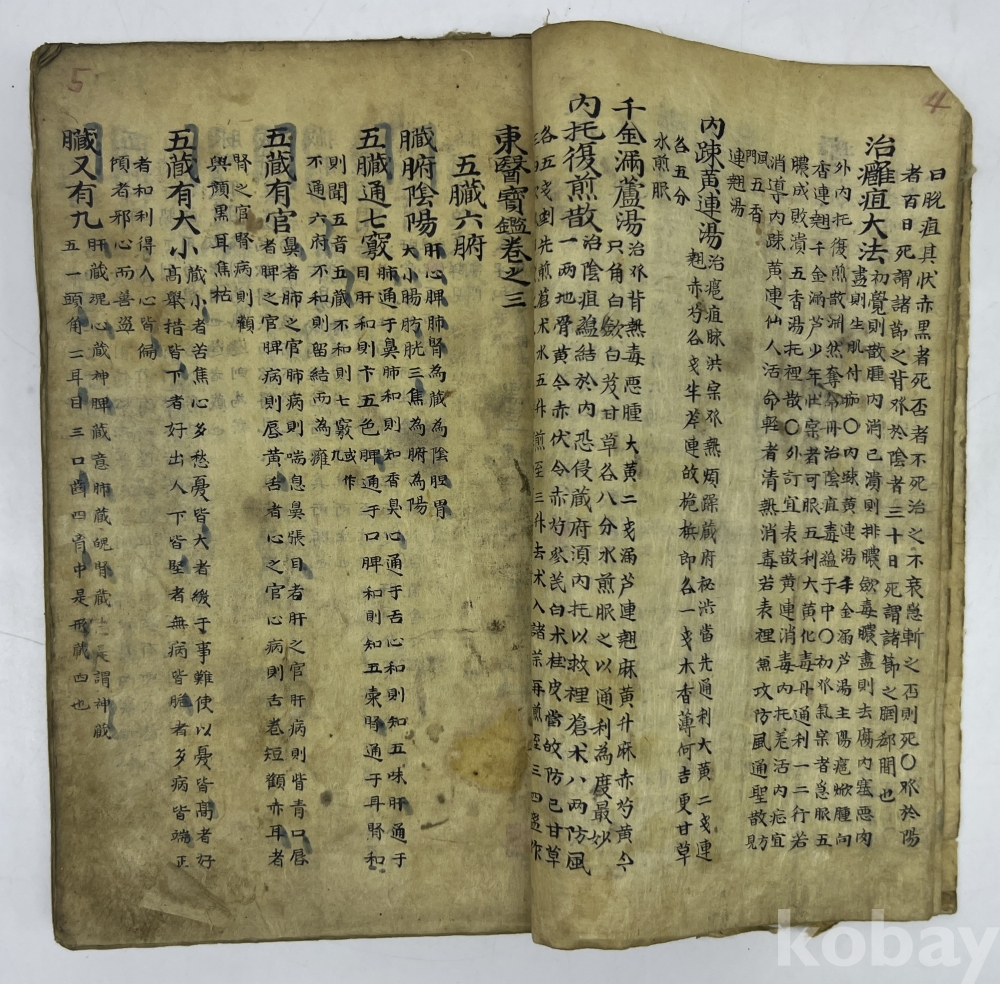 4
曰脫疽其伏赤黑者死否者不死治之不衰急斬之否則死〇癶於陽
者百日死謂諸節之背癶於陰者三十日死謂諸節之膕郄間也
治癰疽大法
初覺則散腫內消已潰則排膿斂毒膿盡則去腐內塞惡肉
盡則生肌付痂〇內踈黃連湯千金漏芦湯主陽疽焮腫向
外內托復煎散
香連翹千金漏芦
膿成敗潰五香湯托裡散〇外訂宜表散黃連消毒內托羌活內疽宜
消導內踈黃連仙人活命輕者清熱消毒若表裡兼攻防風通聖散方見
風門五香
連翹湯
內踈黃連湯
治瘡疽脉洪實癶熱煩躁蔵府秘澁當先通利大黃二戔連
翹赤芍各戔半芩連故梔檳郎各一戔木香薄何吉更甘草
各五分
水煎服
千金漏蘆湯
治癶背熱毒惡腫大黃二戔漏芦連翹麻黃升麻赤芍黃今
只角白斂白芨甘草各八分水煎服之以通利為度最妙
內托復煎散
治陰疽蘊結於內恐侵蔵府須內托以救裡蒼朮八兩防風
一兩地骨黃今赤伏令赤芍參芪白朮桂皮當故防已甘草
各五戔剉先煎蒼朮水五升煎至三升去朮入諸薬再煎至三四盞作
東醫寶鑑卷之三
五臟六腑
臟腑陰陽
肝心脾肺腎為蔵為陰胆胃
大小腸肪胱三焦為腑為陽
五臟通七竅
肺通于鼻肺和則知香臭心通于舌心和則知五味肝通于
目肝和則卞五色脾通于口脾和則知五穀腎通于耳腎和
則聞五音五蔵不和則七竅或作九
不通六府不和則留結而為癰
五蔵有官
鼻者肺之官肺病則喘息鼻張目者肝之官肝病則眥青口唇
者脾之官脾病則唇黃舌者心之官心病則舌卷短顴赤耳者
腎之官腎病則顴
與顏黑耳焦枯
五蔵有大小
蔵小者苦焦心多愁憂皆大者緩于事難使以憂皆高者好
高舉措皆下者好出人下皆堅者無病皆脆者多病皆端正
者和利得人心皆偏
傾者邪心而善盜
臟又有九
肝蔵魂心蔵神脾蔵意肺蔵魄腎蔵志是謂神蔵
五一頭角二耳目三口齒四胷中是形蔵四也
5
kobay